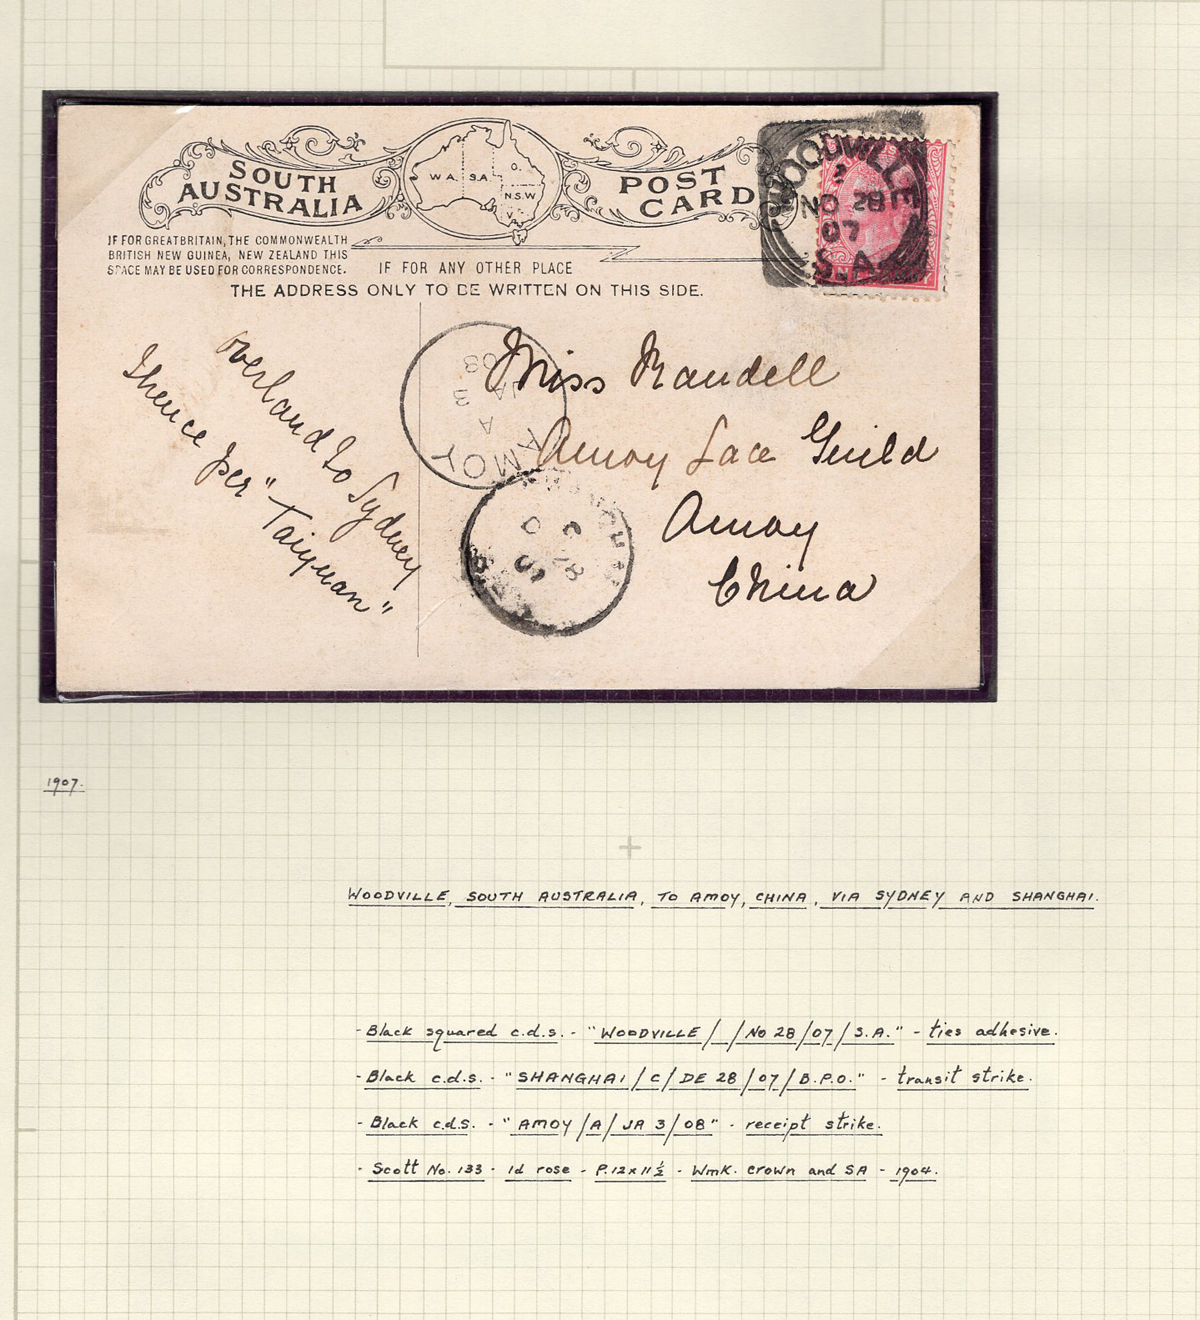 SOUTH AUSTRALIA
W A.
S.A.
Q.
N.S.W
V.
POST CARD
IF FOR GREAT BRITAIN, THE COMMONWEALTH
BRITISH NEW GUINEA, NEW ZEALAND THIS
SPACE MAY BE USED FOR CORRESPONDENCE.
IF FOR ANY OTHER PLACE
THE ADDRESS ONLY TO BE WRITTEN ON THIS SIDE.
WOODVILLE
NO 28
07
S.A
Overland to Sydney
Thence per "Taiyuan"
AMOY
A
JA 3
08
Miss Randell
Amoy Lace Guild
Amoy
China
1907.
WOODVILLE, SOUTH AUSTRALIA, TO AMOY, CHINA, VIA SYDNEY AND SHANGHAI.
- Black squared c.d.s. - "WOODVILLE/ /NO 28/07/S.A." - ties adhesive.
- Black c.d.s. - "SHANGHAI/C/DE 28/07/B.P.O." - transit strike.
- Black c.d.s. - "AMOY/A/JA 3/08" - receipt strike.
- Scott No. 133 - 1d rose - P.12x11½ - Wmk. crown and SA - 1904.